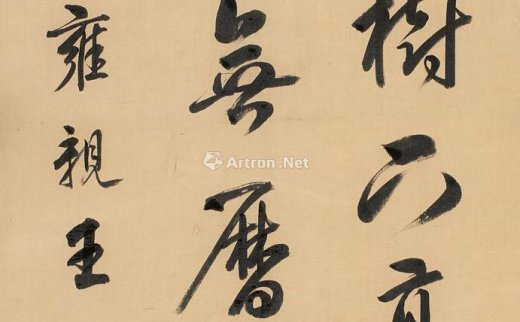 樹下高
無曆
雍親王
Artron.Net